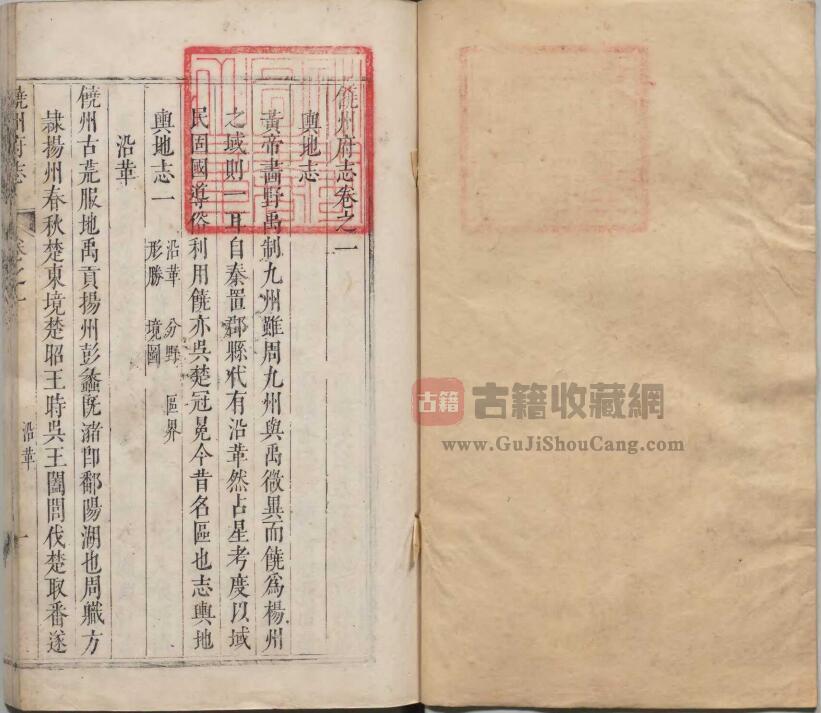 饒州府志卷之一
輿地志
黃帝畫野禹制九州雖周九州與禹微異而饒爲楊州
之域則一耳自秦置郡縣代有沿革然占星考度以域
民固國導俗利用饒亦吳楚冠冕今昔名區也志輿地
輿地志一
沿革 分野 區界
形勝 境圖
沿革
饒州古荒服地禹貢揚州彭蠡旣瀦卽鄱陽湖也周職方
隷揚州春秋楚東境楚昭王時吳王闔閭伐楚取番遂
饒州府志
卷之一
沿革
一
古籍
古籍收藏網
www.GuJiShouCang.com